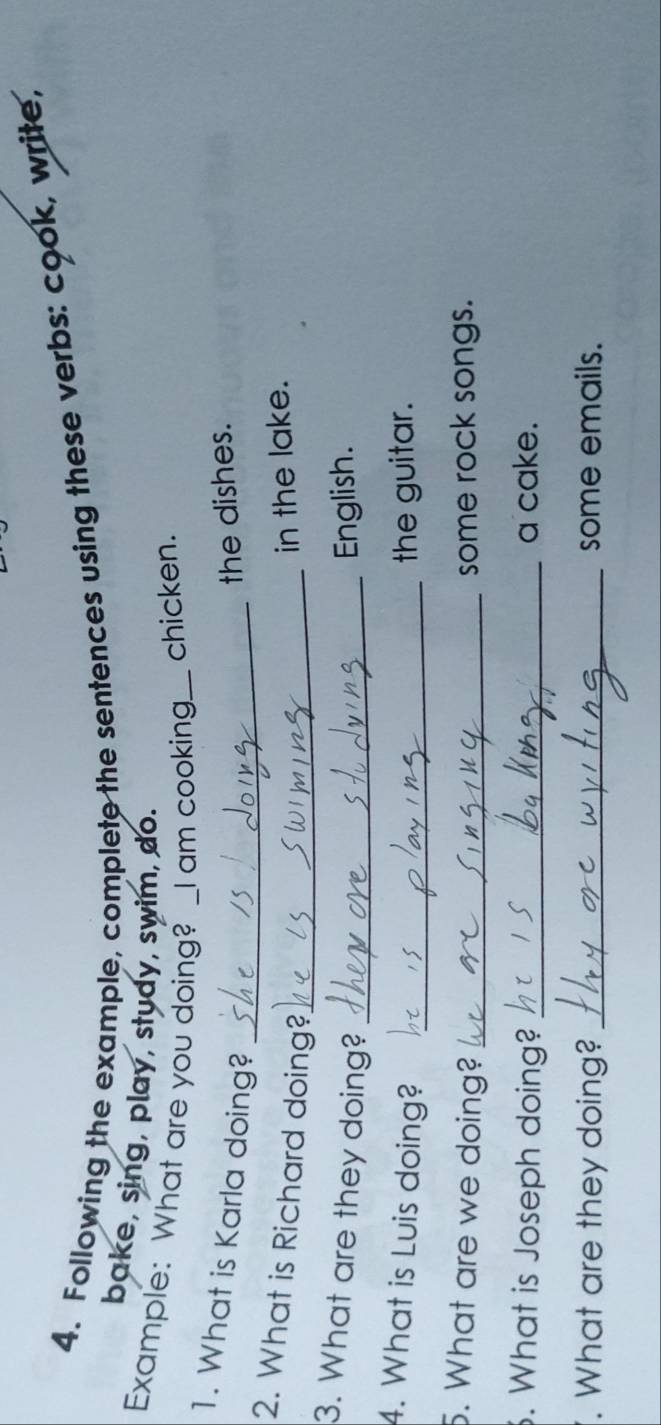 4. Following the example, complete the sentences using these verbs: cook, write,
bake, sing, play, study, swim, do.
Example: What are you doing? _I am cooking__ chicken.
1. What is Karla doing? she is doing the dishes.
2. What is Richard doing? he is swiming in the lake.
3. What are they doing? they are studying English.
4. What is Luis doing? he is playing the guitar.
5. What are we doing? we are singing some rock songs.
. What is Joseph doing? he is baking a cake.
. What are they doing? they are writing some emails.